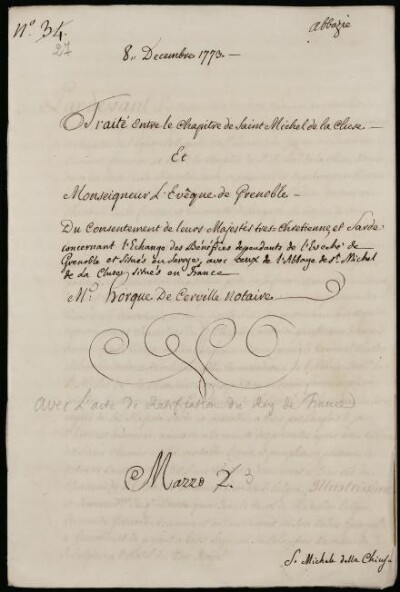 N.º 34.
27
abbazie
8,, Decembre 1773.
Traité entre le Chapitre de Saint Michel de la Cluse
Et
Monseigneur L'Evêque de Grenoble
Du Consentement de leurs Majestés tres Chretienne, et Sarde
concernant l'Echange des Bénéfices dependants de l'Eveché de
Grenoble et situés en Savoye, avec ceux de l'Abbaye de St. Michel
de la Cluse, situés en France
Me. Horque De Cerville Notaire
avec L'acte de Ratification du Roy de France
Mazzo 2. 3
S. Michele della Chiusa